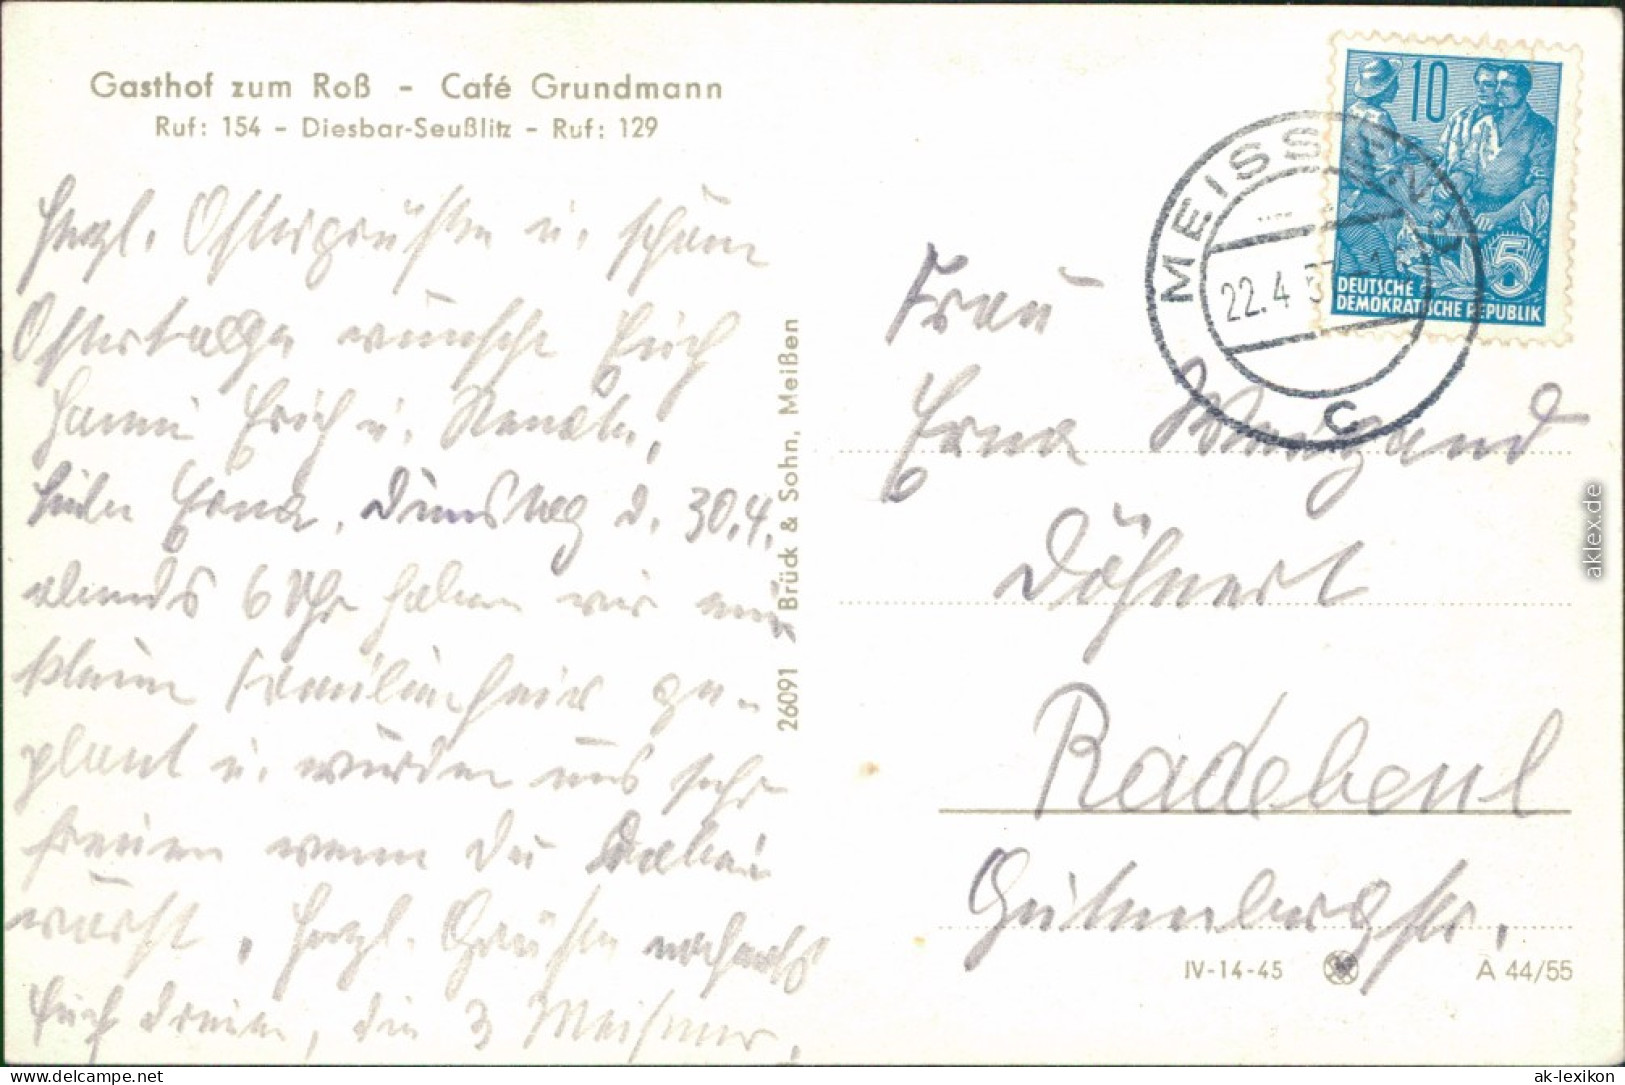 Gasthof zum Roß - Café Grundmann
Ruf: 154 - Diesbar-Seußlitz - Ruf: 129
Herzl. Ostergrüßen u. schöne
Ostertage wünscht Euch
Hanni Erich u. Renate,
liebe Erna, Dienstag d. 30.4.
abends 6 Uhr haben wir eine
kleine Familienfeier ge-
plant u. würden uns sehr
freuen wenn Du dabei
wärst, Herzl. Grüße
Euch dreien, die 3 Meißner.
26091 Brück & Sohn, Meißen
10
5
DEUTSCHE
DEMOKRATISCHE REPUBLIK
MEISSEN
22.4.57
C
Frau
Erna
Döhnert
Radebeul
Gutenbergstr.
IV-14-45 A 44/55
aklex.de
delcampe.net
ak-lexikon